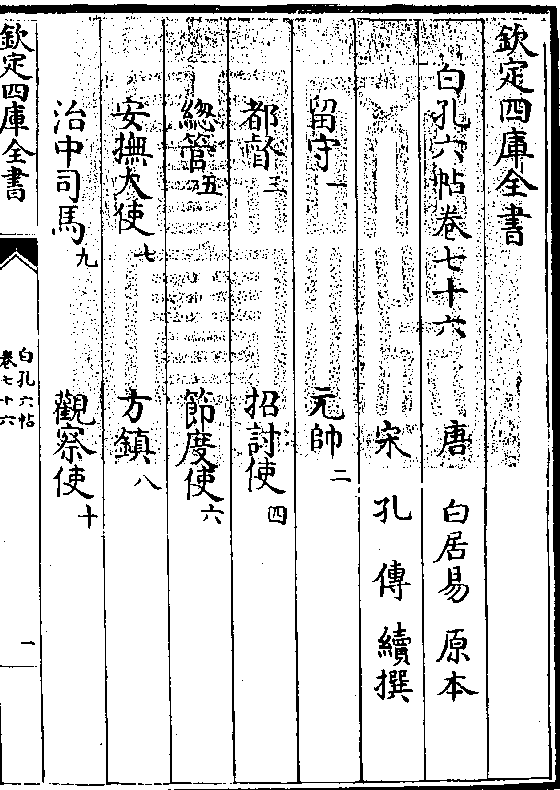 欽定四庫全書
白孔六帖卷七十六
唐 白居易 原本
宋 孔傳 續撰
留守一 元帥二
都督三 招討使四
總管五 節度使六
安撫大使七 方鎮八
治中司馬九 觀察使十
欽定四庫全書
白孔六帖
卷七十六
一